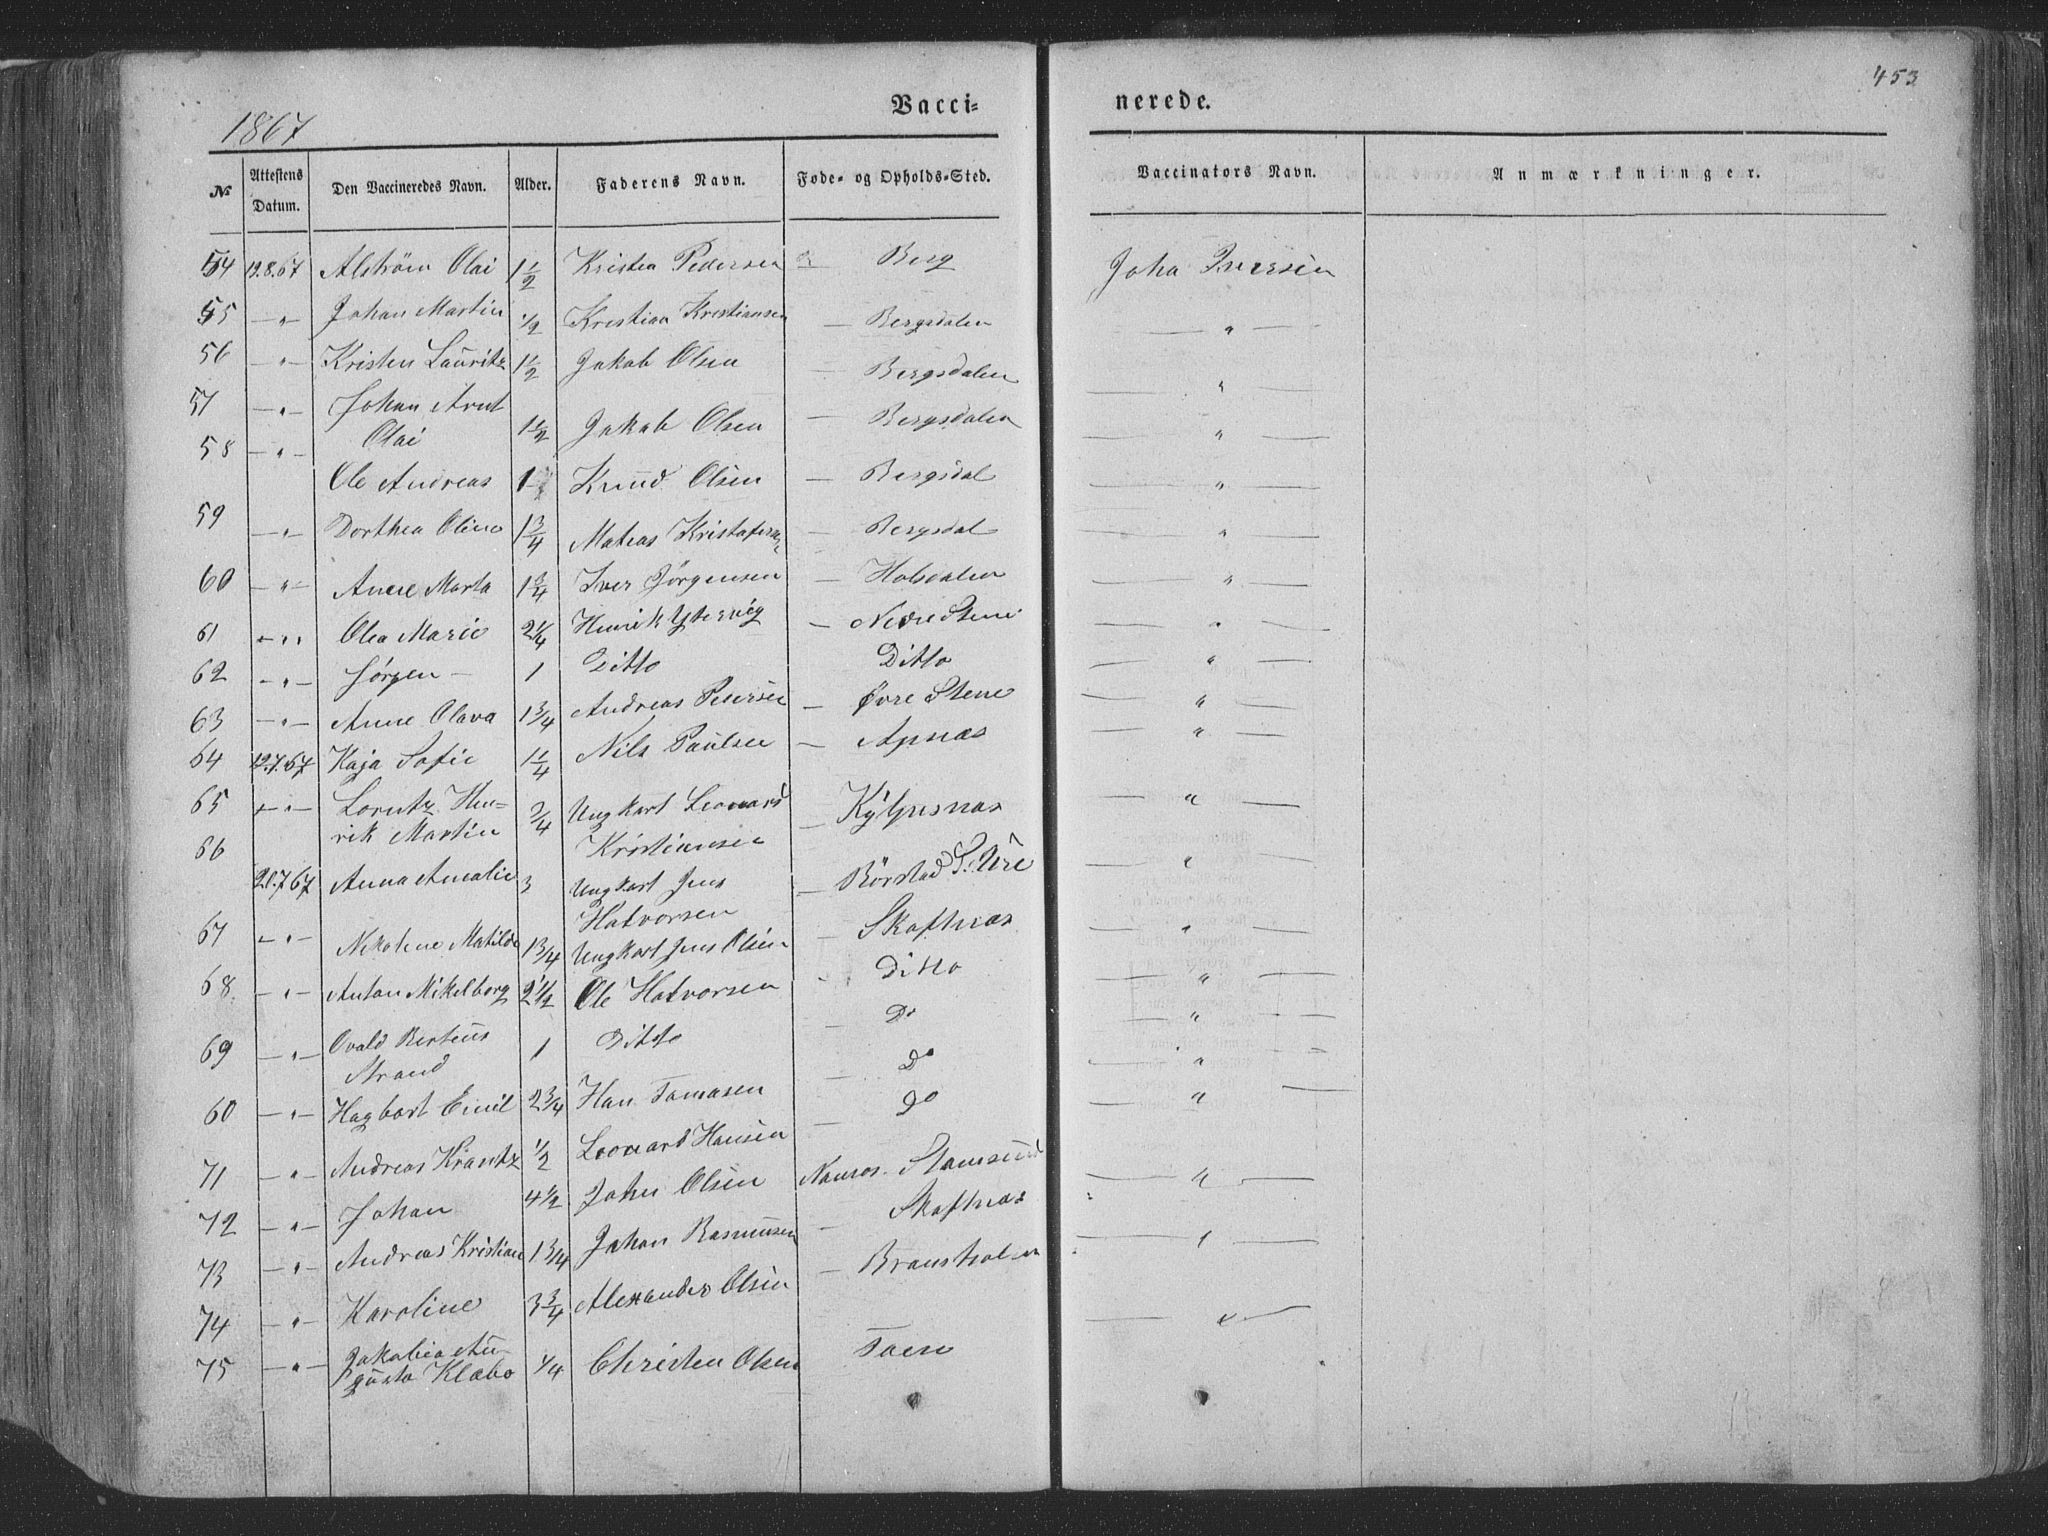 453
1867
Vacci-
nerede.
No
Attestens Datum.
Den Vaccineredes Navn.
Alder.
Faderens Navn.
Føde- og Opholds-Sted.
Vaccinators Navn.
Anmærkninger.
54 12.8.67 Alström Olai 1 1/2 Kristen Pedersen Berg Joha Iversen
55 —"— Johan Martin 1/2 Kristian Kristiansen — Bergsdalen —"—
56 —"— Kristen Lauritz 1 1/2 Jakob Olsen — Bergsdalen —"—
57 —"— Johan Arnt
Olai 1 1/2 Jakob Olsen — Bergsdalen —"—
58 —"— Ole Andreas 1 Knud Olsen — Bergsdal —"—
59 —"— Dorthea Oline 1 3/4 Matias Kristofersen — Bergsdal —"—
60 —"— Anne Marta 1 3/4 Iver Jörgensen — Holsdalen —"—
61 —"— Olea Marie 2 1/4 Henrik Ytervig — Nedre Stene —"—
62 —"— Jørgen — 1 Ditto Ditto —"—
63 —"— Anne Olava 1 3/4 Andreas Petersen — Øvre Stene —"—
64 12.7.67 Kaja Sofie 1 1/4 Nils Paulsen — Apnæs —"—
65 —"— Lorntz Hen-
rik Martin 3/4 Ungkarl Leonard
Kristiansen — Kylpesnæs —"—
66 20.7.67 Anna Amalie 3 Ungkarl Jens
Halvorsen — Börstad S. Ure —"—
67 —"— Nikoline Matilde 1 3/4 Ungkarl Jens Olsen — Skafnæs —"—
68 —"— Anton Mikelborg 2 1/2 Ole Halvorsen Ditto —"—
69 —"— Ovald Berteus
Strand 1 Ditto Do —"—
60 —"— Hagbart Emil 2 3/4 Han Tomasen — Do —"—
71 —"— Andreas Krantz 1/2 Leonard Hansen — Do —"—
72 —"— Johan 4 1/2 John Olsen Stamsund —"—
73 —"— Andreas Kristian 1 3/4 Johan Rasmusen — Skafnæs —"—
74 —"— Karoline 3 3/4 Alexander Olsen —
75 —"— Jakobea Au-
gusta Klæbo 1/4 Christen Olsen Toen —"—
"
"